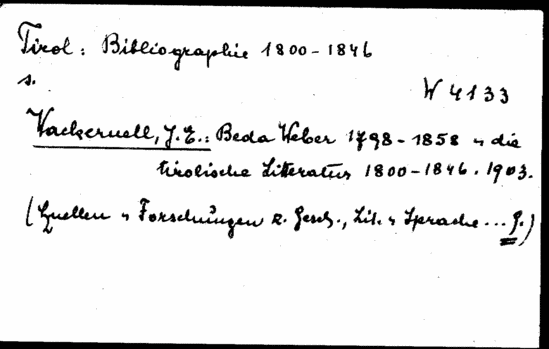 Tirol: Bibliographie 1800-1846
s.
W 4133
Wackernell, J.E.: Beda Weber 1798-1858 u die
tirolische Litteratur 1800-1846. 1903.
(Quellen u Forschungen z. Gesch., Lit. u Sprache ... 9.)